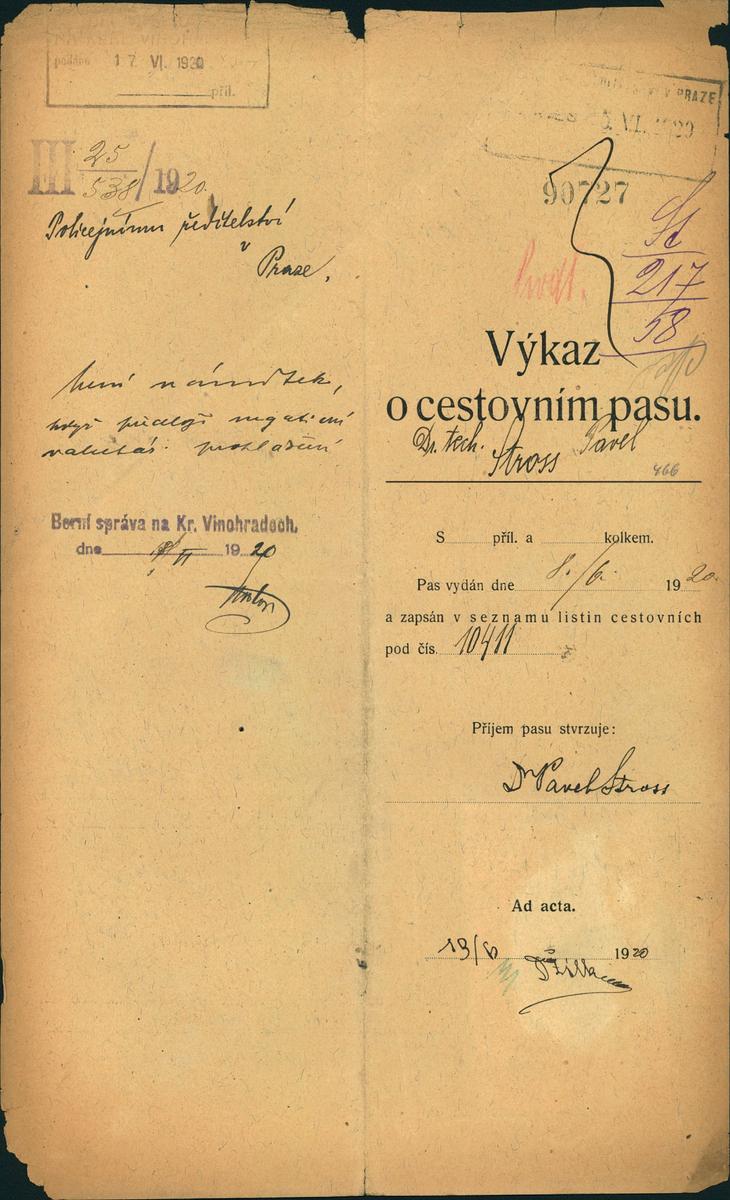 podáno 17. VI. 1920
příl.
III 25/538/1920.
Policejnímu ředitelství
v
Praze,
Není námitek,
když
prohlášení
Berní správa na Kr. Vinohradech,
dne 1920
V PRAZE
VI. 1920
90727
St
217
58
Výkaz
o cestovním pasu.
Dr. tech. Stross Pavel
466
S příl. a kolkem.
Pas vydán dne 8./6. 1920.
a zapsán v seznamu listin cestovních
pod čís. 10411
Příjem pasu stvrzuje:
Dr Pavel Stross
Ad acta.
19/6 1920